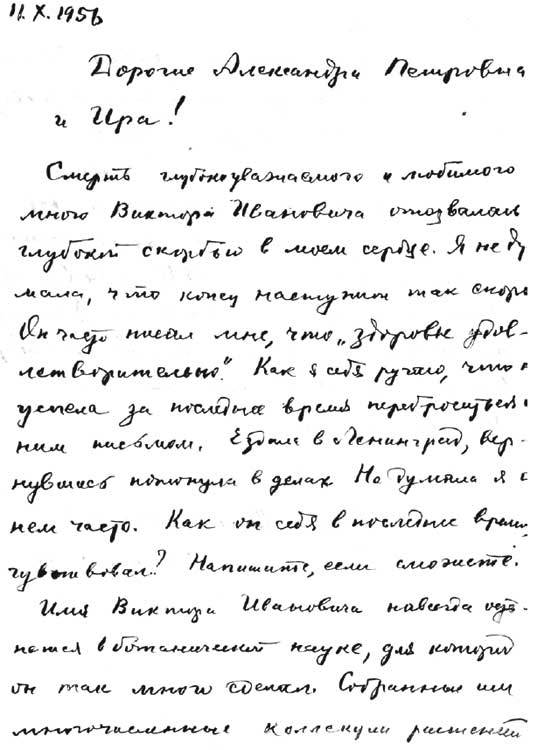 11. X. 1956
Дорогие Александра Петровна
и Ира!
Смерть глубокоуважаемого и любимого
мною Виктора Ивановича отозвалась
глубокой скорбью в моем сердце. Я не ду
мала, что конец наступит так скоро
Он часто писал мне, что „здоровье удов-
летворительно". Как я себя ругаю, что н
успела за последнее время переброситься с
ним письмом. Ездила в Ленинград, вер-
нувшись потонула в делах. Но думала я о
нем часто. Как он себя в последнее время
чувствовал? Напишите, если сможете.
Имя Виктора Ивановича навсегда оста-
нется в ботанической науке, для которой
он так много сделал. Собранные им
многочисленные коллекции растений